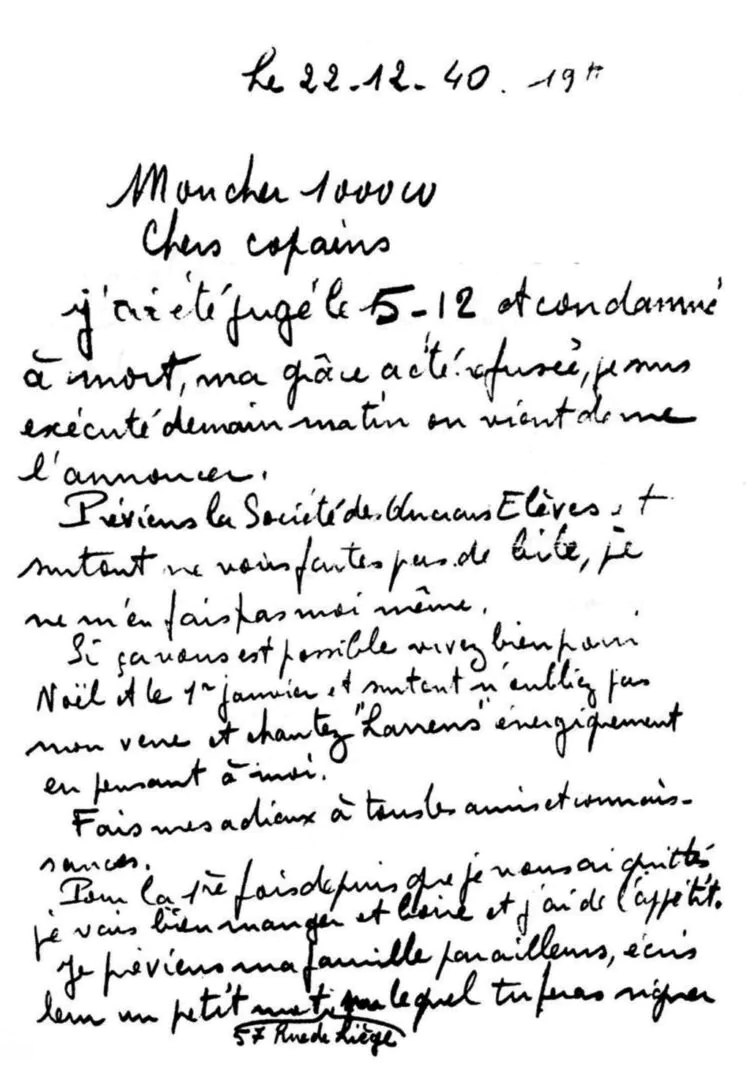 Le 22-12-40. 19h
Mon cher 1000W
Chers copains
j'ai été jugé le 5-12 et condamné
à mort, ma grâce a été refusée, je suis
exécuté demain matin on vient de me
l'annoncer.
Préviens la Société des Anciens Elèves et
surtout ne vous faites pas de bile, je
ne m'en fais pas moi même.
Si ça vous est possible vivez bien pour
Noël et le 1er janvier et surtout n'oubliez pas
mon verre et chantez "Larrens" énergiquement
en pensant à moi.
Fais mes adieux à tous les amis et connais-
sances.
Pour la 1ère fois depuis que je vous ai quittés
je vais bien manger et boire et j'ai de l'appétit.
Je préviens ma famille par ailleurs, écris
leur un petit mot sur lequel tu feras signer
57 Rue de Liège